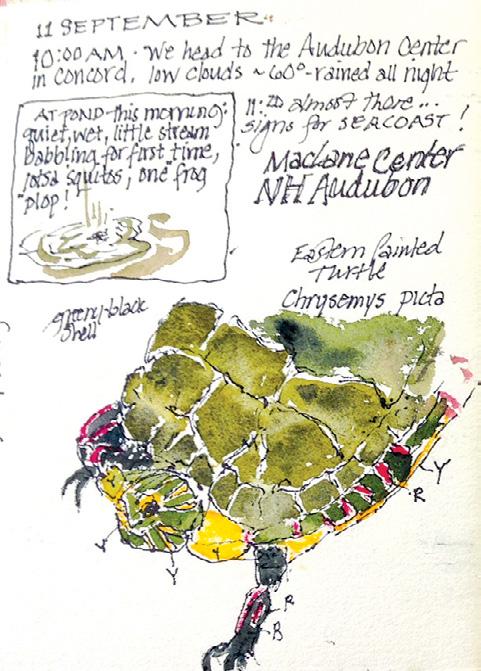 11 SEPTEMBER
10:00 AM. We head to the Audubon Center
in Concord. low clouds ~60°-rained all night
AT POND this morning:
quiet, wet, little stream
babbling for first time,
lotsa squitos; one frog
"plop!"
11:20 almost there...
signs for SEACOAST!
MacLane Center
NH Audubon
Eastern Painted
Turtle
Chrysemys picta
greeny-black
shell
Y
R
Y
Y
Y
Y
R
B